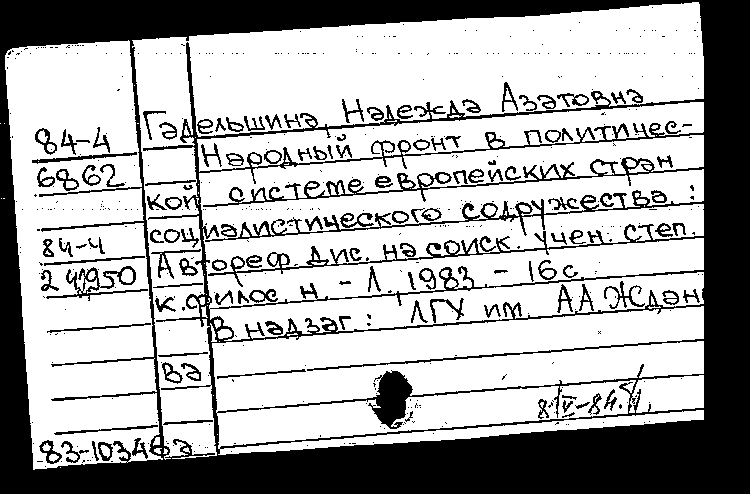 Гадельшина, Надежда Азатовна
84-4
6862
Народный фронт в политичес-
кой системе европейских стран
социалистического содружества. :
84-4
Автореф. дис. на соиск. учен. степ.
к. филос. н. - Л., 1983. - 16 с.
В надзаг: ЛГУ им. А.А. Ждан
ва
83-10346а